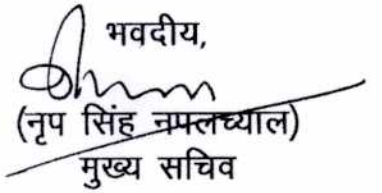 भवदीय,
(नृप सिंह नपलच्याल)
मुख्य सचिव